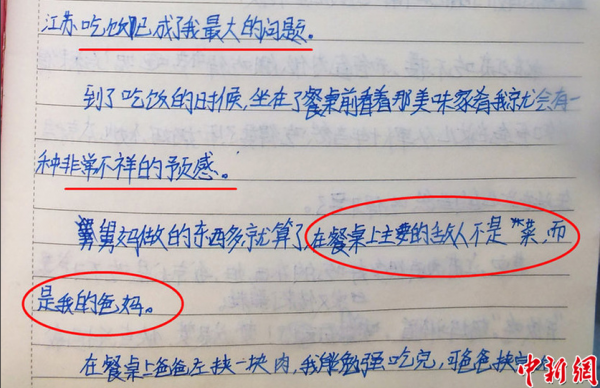 江苏吃饭已成了我最大的问题。
到了吃饭的时候,坐在了餐桌前看着那美味家肴我就会有一
种非常不祥的预感。
舅舅妈做的东西多就算了在餐桌上主要的敌人不是"菜,而
是我的爸妈。
在餐桌上爸爸左挟一块肉,我能勉强吃完,可爸爸挟完
中新網